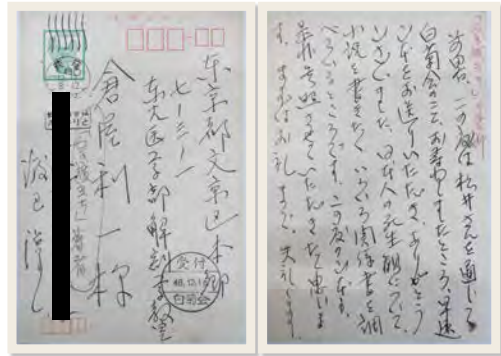 東京都文京区本郷
七ー三ー一
東大医学部解剖学教室
倉屋利一様
渡辺淳一
受付
白菊会
前略、この度は松井さんを通じて
白菊会のことお尋ねしましたところ、早速
パンフをお送りいただき、ありがとう
ございました。日本人の死生観について、
小説を書きたく、いろいろ関係書を調
べているところです。この度のパンフも
是非参照させていただきたく思いま
す。まずはお礼まで。失礼します。